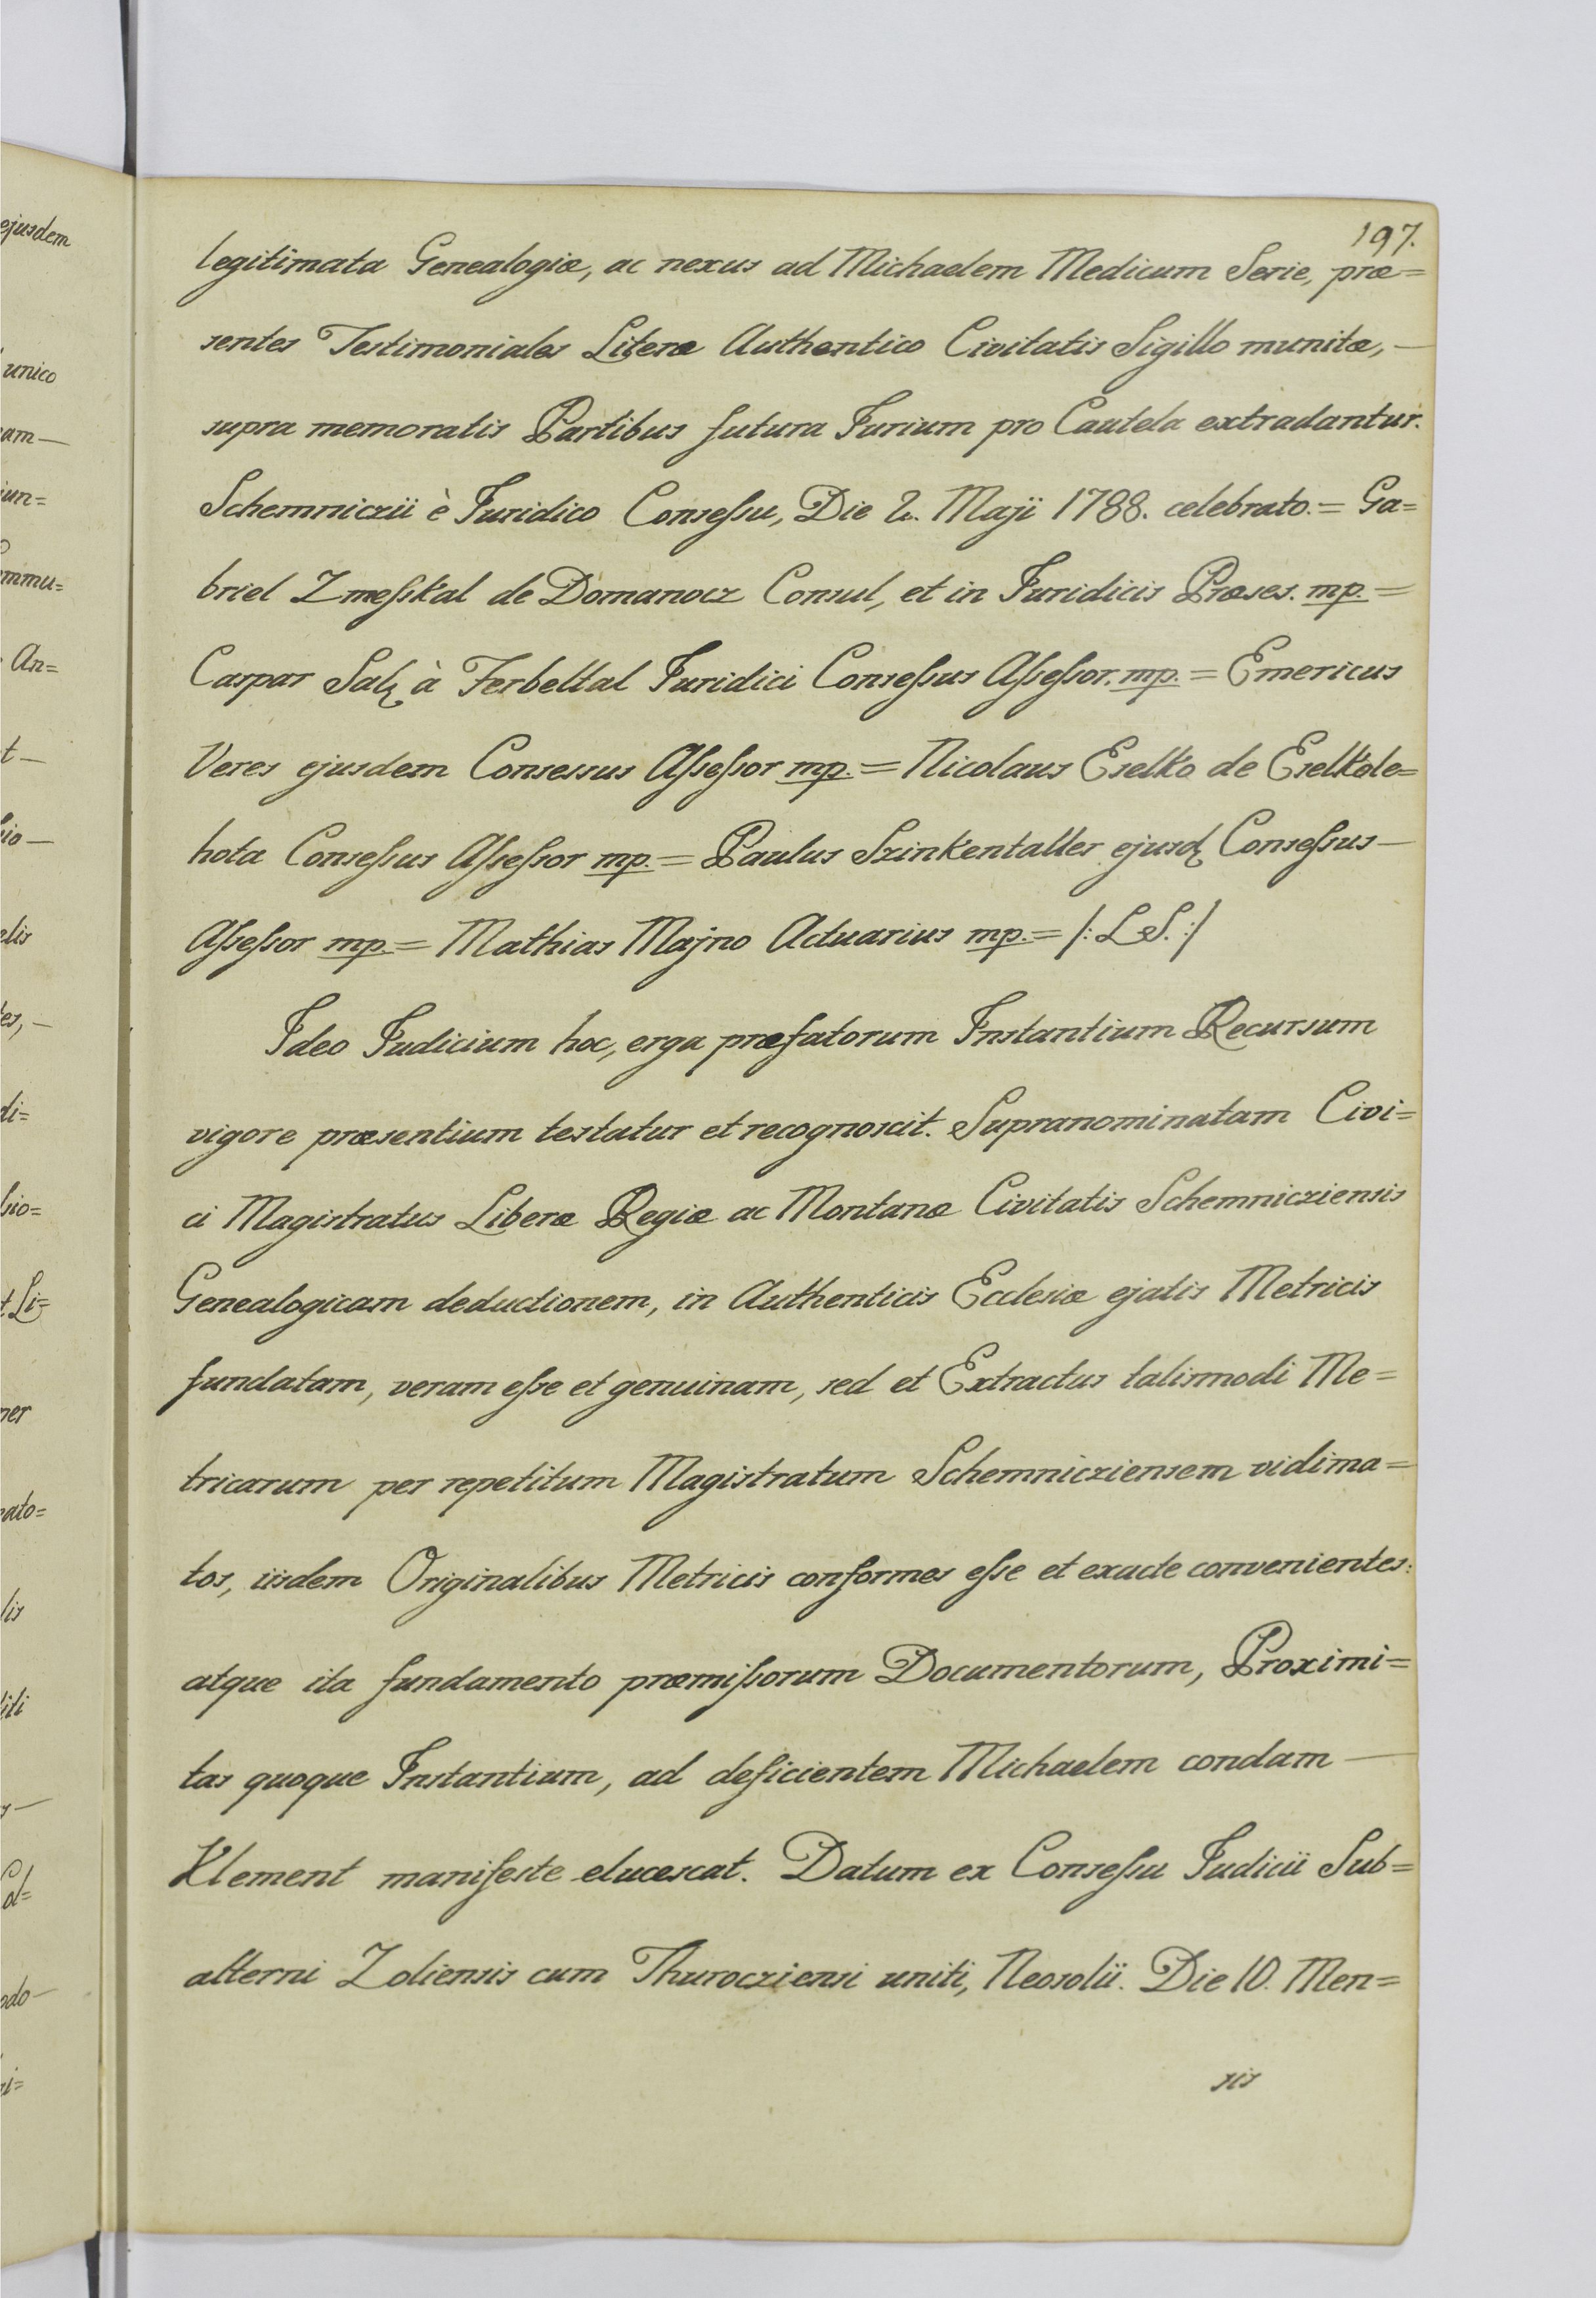 197.
legitimata Genealogiæ, ac nexus ad Michaelem Medicum Serie, præ=
sentes Testimoniales Literæ Authentico Civitatis Sigillo munitæ,—
supra memoratis Partibus futura Jurium pro Cautela extradantur.
Schemniczii è Juridico Consessu, Die 2. Maji 1788. celebrato.= Ga=
briel Zmesskal de Domanocz Consul, et in Juridicis Præses. mp.=
Caspar Salz à Ferbeltal Juridici Consessus Assessor. mp.= Emericus
Veres ejusdem Consessus Assessor mp.= Nicolaus Eselko de Eselkole=
hota Consessus Assessor mp.= Paulus Szinkentaller ejusd Consessus—
Assessor mp.= Mathias Majno Actuarius mp.= /: L.S. :/
Ideo Judicium hoc, erga præfatorum Instantium Recursum
vigore præsentium testatur et recognoscit. Supranominatam Civi=
ci Magistratus Liberæ Regiæ ac Montanæ Civitatis Schemnicziensis
Genealogicam deductionem, in Authenticis Ecclesiæ ejatis Metricis
fundatam, veram esse et genuinam, sed et Extractus talismodi Me=
tricarum per repetitum Magistratum Schemnicziensem vidima=
tos, iisdem Originalibus Metricis conformes esse et exacte convenientes:
atque ita fundamento præmissorum Documentorum, Proximi=
tas quoque Instantium, ad deficientem Michaelem condam—
Klement manifeste elucescat. Datum ex Consessu Judicii Sub=
alterni Zoliensis cum Thurocziensi uniti, Neosolii. Die 10. Men=
sis
ejusdem
unico
am—
iun=
mmu=
An=
t—
sio—
elis
es,—
di=
sio=
t Li=
ner
ato=
lis
iti
s—
ol=
odo—
si=